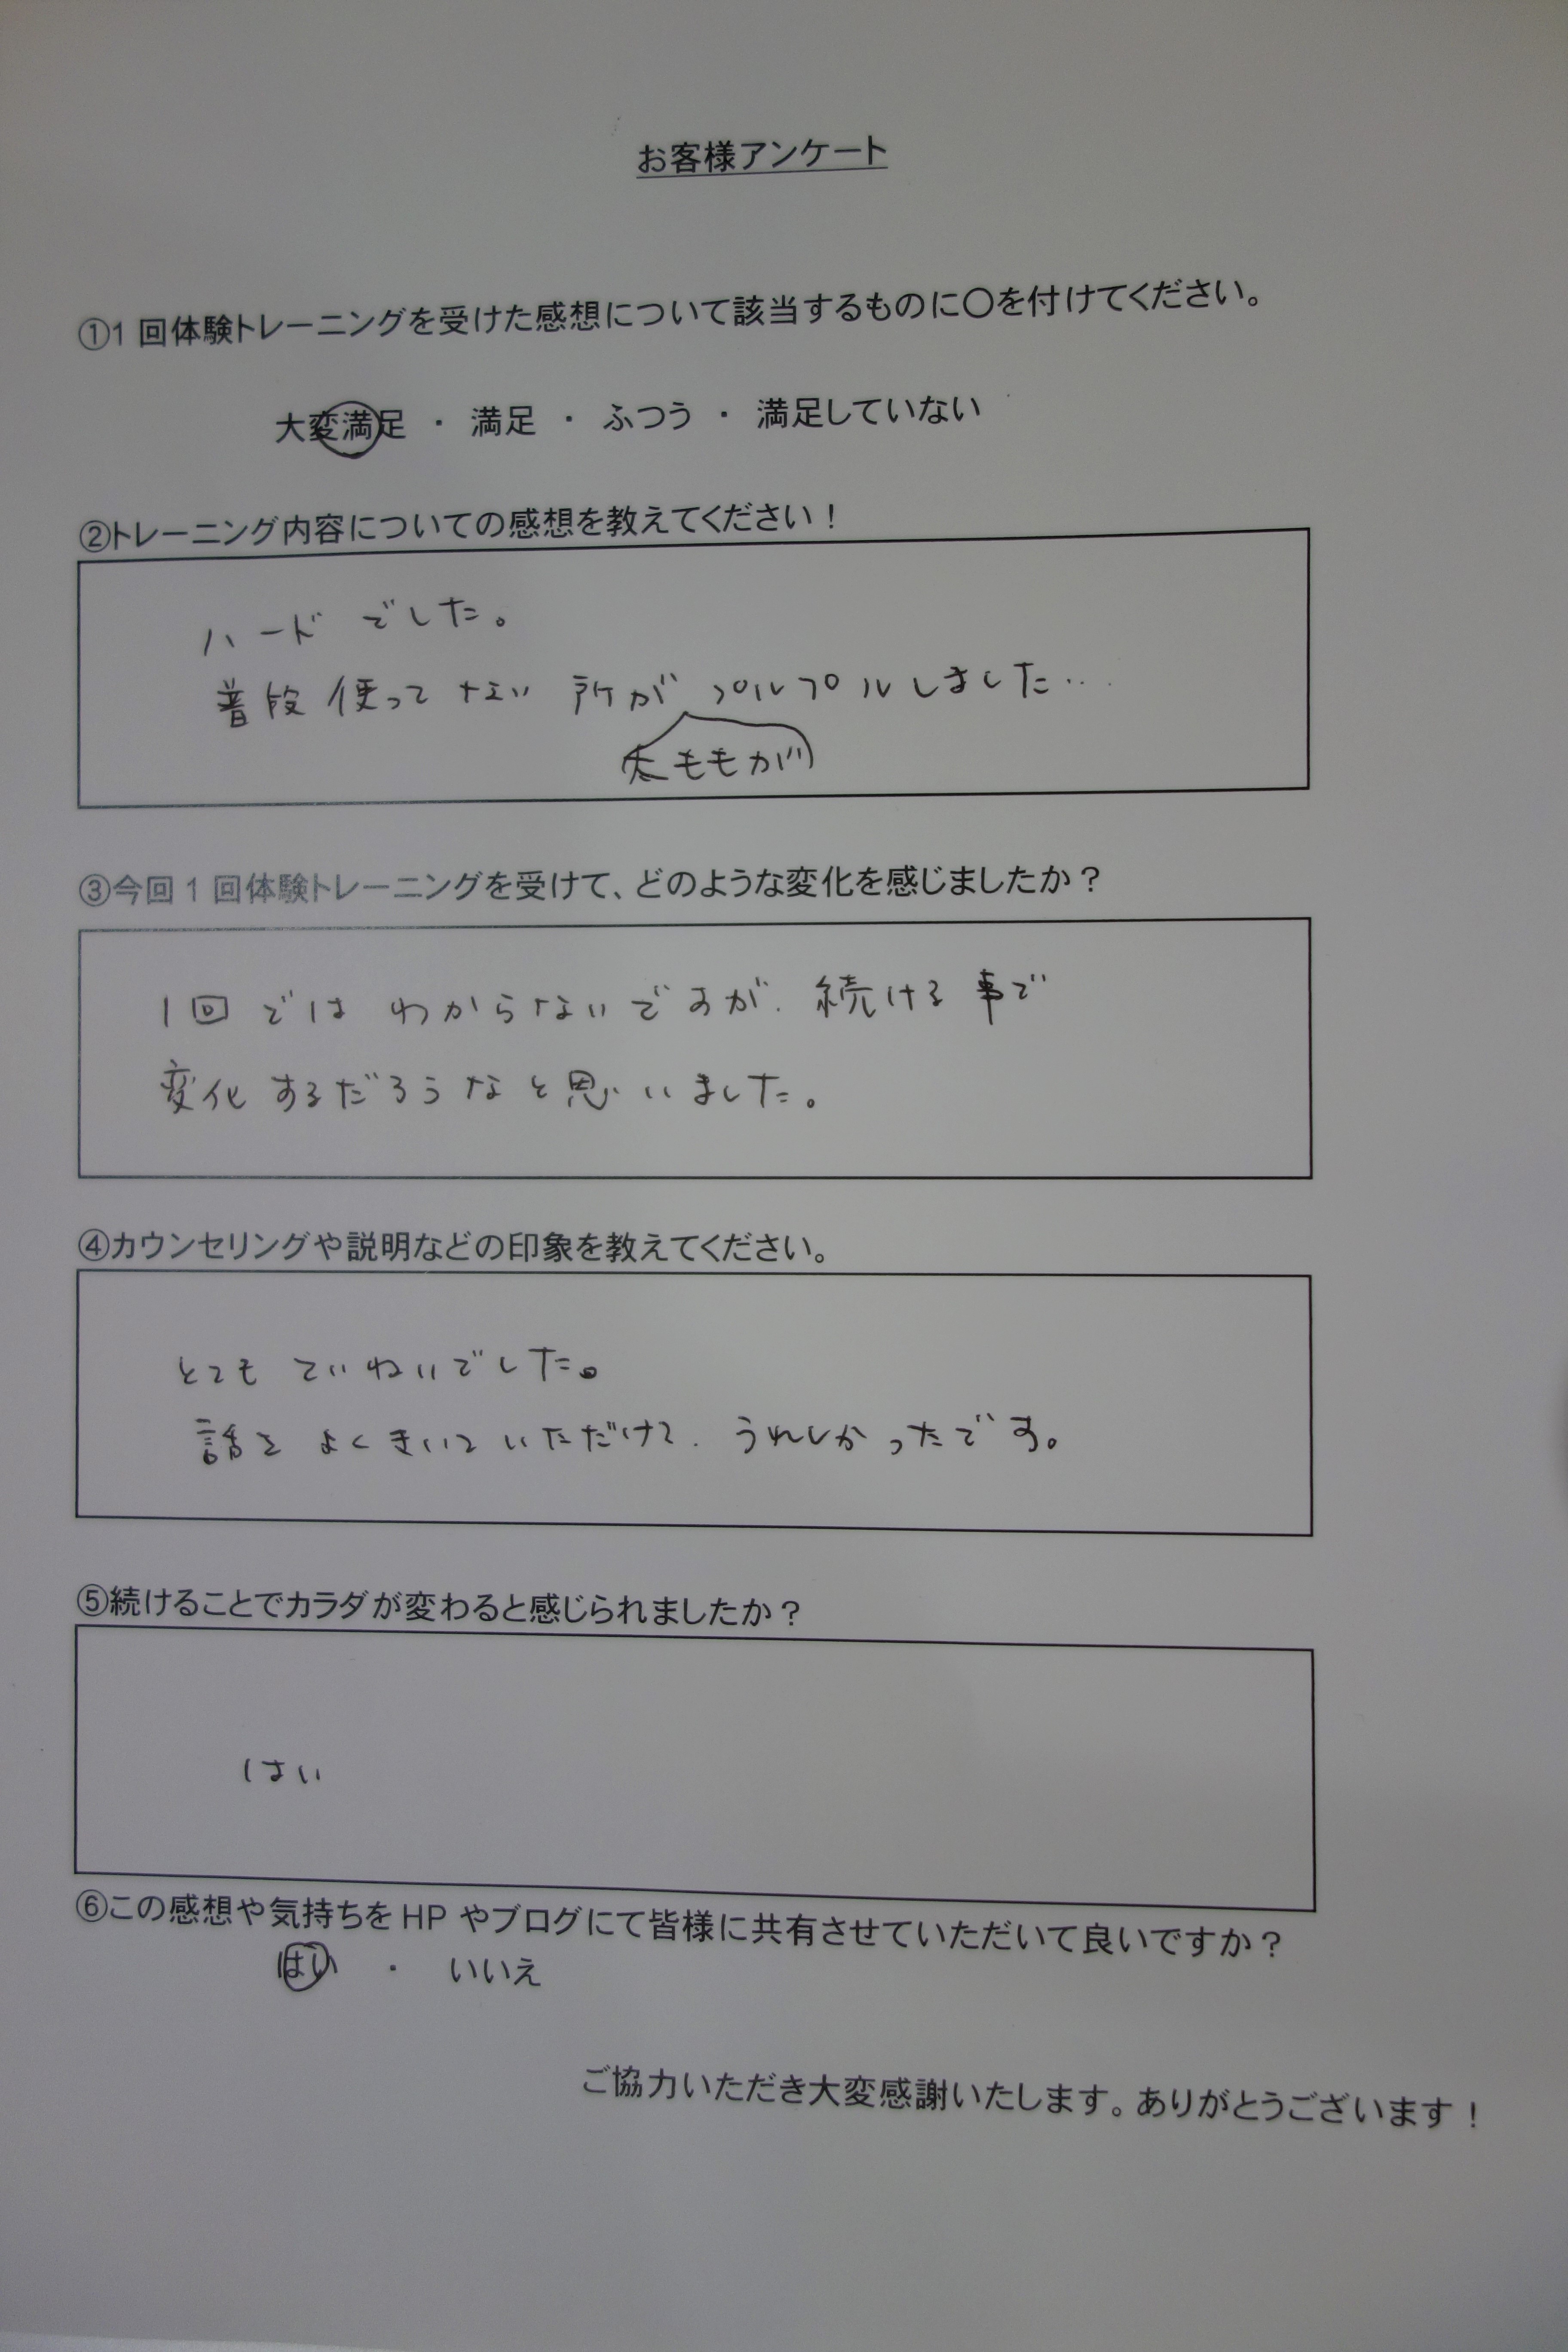 お客様アンケート
①1 回体験トレーニングを受けた感想について該当するものに〇を付けてください。
大変満足 ・ 満足 ・ ふつう ・ 満足していない
②トレーニング内容についての感想を教えてください！
ハードでした。
普段使ってない所がプルプルしました…
太ももが
③今回 1 回体験トレーニングを受けて、どのような変化を感じましたか？
1回ではわからないですが、続ける事で
変化するだろうなと思いました。
④カウンセリングや説明などの印象を教えてください。
とてもていねいでした。
話をよくきいていただけて、うれしかったです。
⑤続けることでカラダが変わると感じられましたか？
はい
⑥この感想や気持ちを HP やブログにて皆様に共有させていただいて良いですか？
はい ・ いいえ
ご協力いただき大変感謝いたします。ありがとうございます！